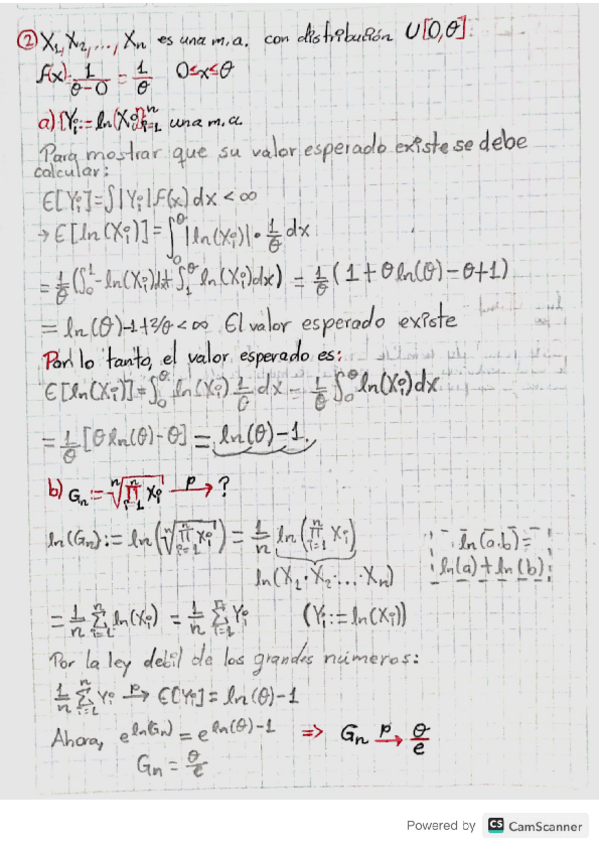 ② X₁, X₂, ..., Xₙ es una m.a. con distribución U[0,θ].
f(x)=1/(θ-0) = 1/θ 0≤x≤θ
a) {Yᵢ:= ln(Xᵢ)}ⁿᵢ₌₁ una m.a
Para mostrar que su valor esperado existe se debe
calcular:
E[Yᵢ]=∫|Yᵢ|f(x)dx < ∞
→ E[ln(Xᵢ)] = ∫₀^θ |ln(Xᵢ)|·1/θ dx
= 1/θ (∫₀¹ -ln(Xᵢ)dx+∫₁^θ ln(Xᵢ)dx) = 1/θ (1+θln(θ)-θ+1)
= ln(θ)-1+2/θ < ∞ El valor esperado existe
Por lo tanto, el valor esperado es:
E[ln(Xᵢ)]=∫₀^θ ln(Xᵢ) 1/θ dx = 1/θ ∫₀^θ ln(Xᵢ)dx
= 1/θ [θln(θ)-θ] = ln(θ)-1.
b) Gₙ:= ⁿ√(∏ⁿᵢ₌₁ Xᵢ) →ᵖ ?
ln(Gₙ):= ln(ⁿ√(∏ⁿᵢ₌₁ Xᵢ)) = 1/n ln(∏ⁿᵢ₌₁ Xᵢ)
ln(X₁·X₂·...·Xₙ)
ln(a.b)=
ln(a)+ln(b)
= 1/n ∑ⁿᵢ₌₁ ln(Xᵢ) = 1/n ∑ⁿᵢ₌₁ Yᵢ (Yᵢ:=ln(Xᵢ))
Por la ley debil de los grandes números:
1/n ∑ⁿᵢ₌₁ Yᵢ →ᵖ E[Yᵢ]=ln(θ)-1
Ahora, e^ln(Gₙ) = e^ln(θ)-1 ⇒ Gₙ →ᵖ θ/e
Gₙ = θ/e
Powered by CS CamScanner